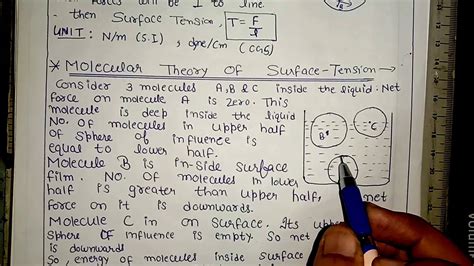 forces will be ⊥ to line.
then Surface Tension, T = F/l
UNIT: N/m (S.I), dyne/cm (CGS)
* Molecular Theory Of Surface-Tension →
Consider 3 molecules A,B & C inside the liquid. Net
force on molecule A is zero. This
molecule is deep inside the liquid
No. Of molecules in upper half
of Sphere of influence is
equal to lower half.
Molecule B is in-side surface
film. No. Of molecules in lower
half is greater than upper half, net
force on it is downwards.
Molecule C in on surface. Its
Sphere OF influence is empty. So net
is downwards
So, energy of molecules inside surface
B
C